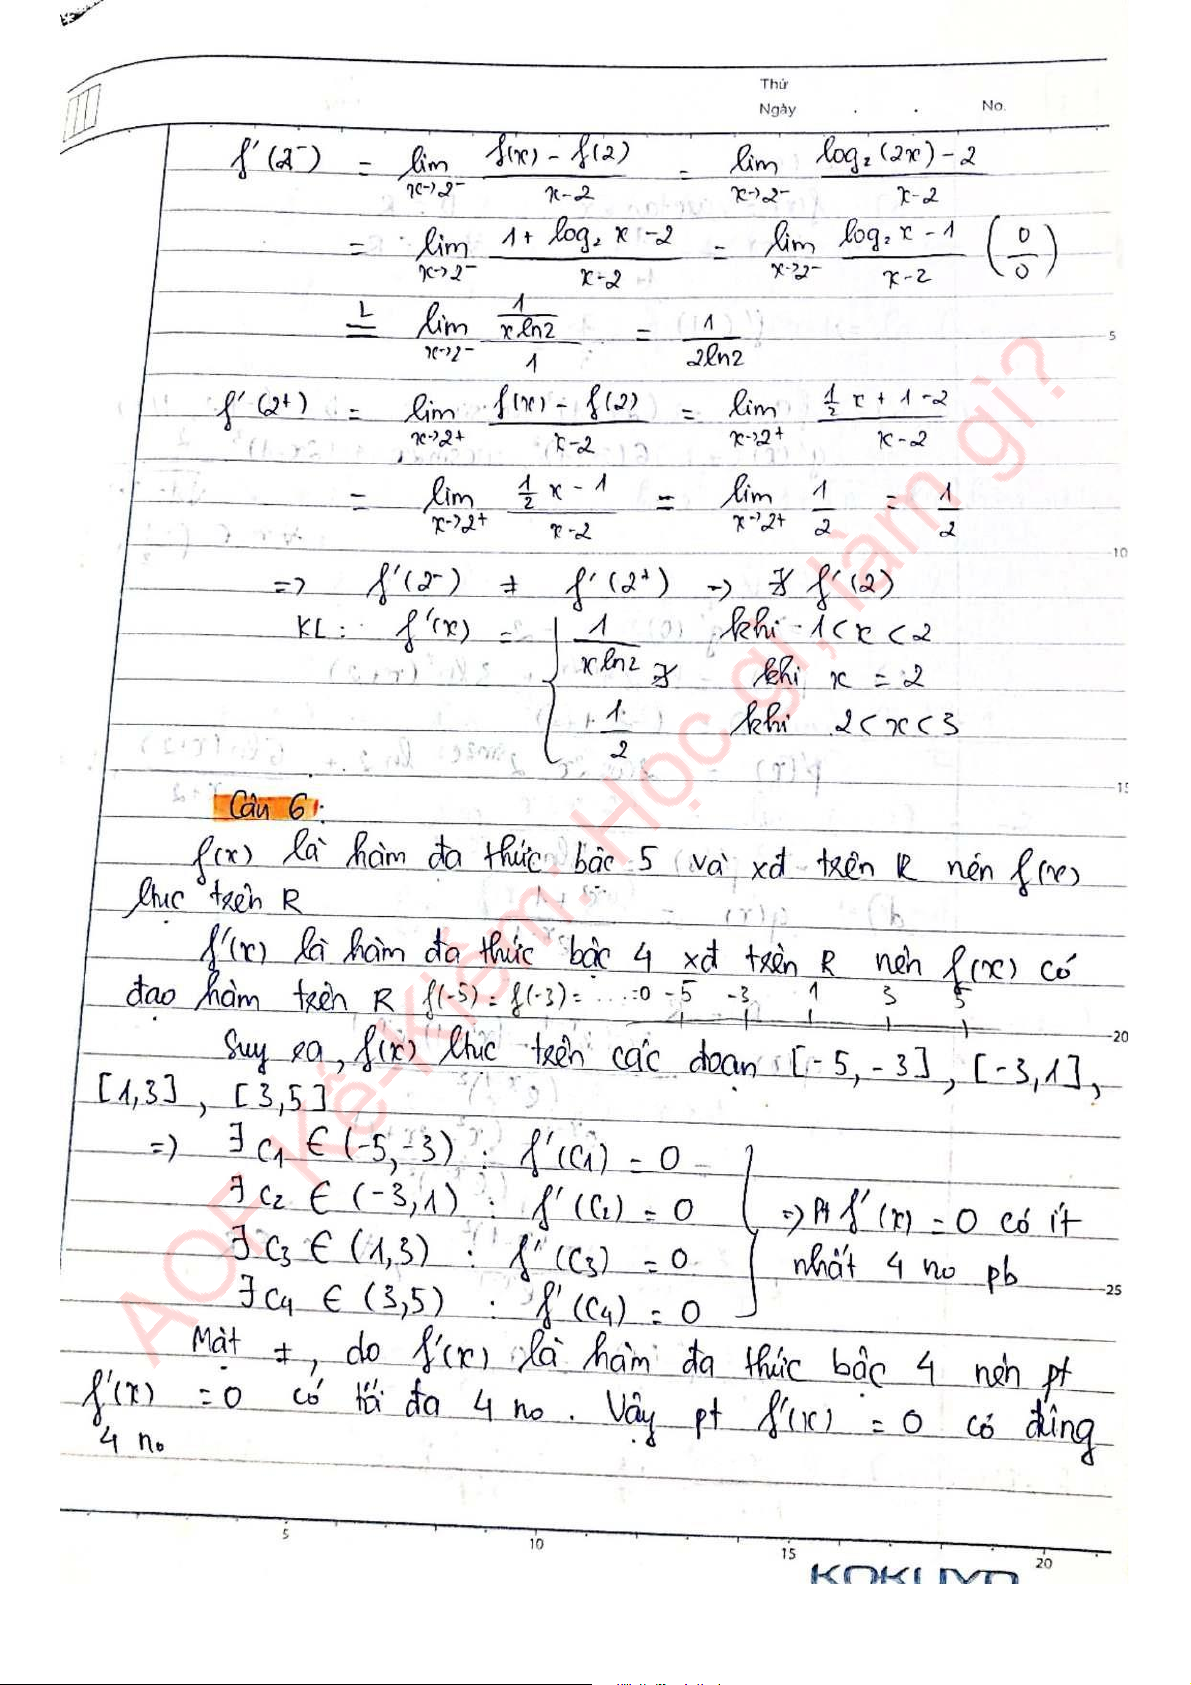 Thứ
Ngày . . No.
f'(2⁻) = lim_{x→2⁻} (f(x) - f(2))/(x-2) = lim_{x→2⁻} (log₂(2x) - 2)/(x-2)
= lim_{x→2⁻} (1 + log₂x - 2)/(x-2) = lim_{x→2⁻} (log₂x - 1)/(x-2) (0/0)
L= lim_{x→2⁻} (1/(x ln2))/1 = 1/(2ln2)
5
f'(2⁺) = lim_{x→2⁺} (f(x) - f(2))/(x-2) = lim_{x→2⁺} (1/2 x + 1 - 2)/(x-2)
= lim_{x→2⁺} (1/2 x - 1)/(x-2) = lim_{x→2⁺} 1/2 = 1/2
10
=> f'(2⁻) ≠ f'(2⁺) => ∄ f'(2)
KL: f'(x) = { 1/(x ln2) khi 1 < x < 2
∄ khi x = 2
1/2 khi 2 < x < 3
15
Câu 6:
f(x) là hàm đa thức bậc 5 và xđ trên R nên f(x)
ltục trên R
f'(x) là hàm đa thức bậc 4 xđ trên R nên f(x) có
đạo hàm trên R f(-5) = f(-3) = ... = 0 -5 -3 1 3 5
20
Suy ra, f(x) ltục trên các đoạn [-5,-3], [-3,1],
[1,3], [3,5]
=> ∃ c₁ ∈ (-5,-3) : f'(c₁) = 0
∃ c₂ ∈ (-3,1) : f'(c₂) = 0 => Pt f'(x) = 0 có ít
∃ c₃ ∈ (1,3) : f'(c₃) = 0 nhất 4 no pb
25
∃ c₄ ∈ (3,5) : f'(c₄) = 0
Mặt ≠, do f'(x) là hàm đa thức bậc 4 nên pt
f'(x) = 0 có tối đa 4 no. Vậy pt f'(x) = 0 có đúng
4 no
5 10 15 20
KOKUYO
AOF Kế-Kiểm: Học gì, làm gì?